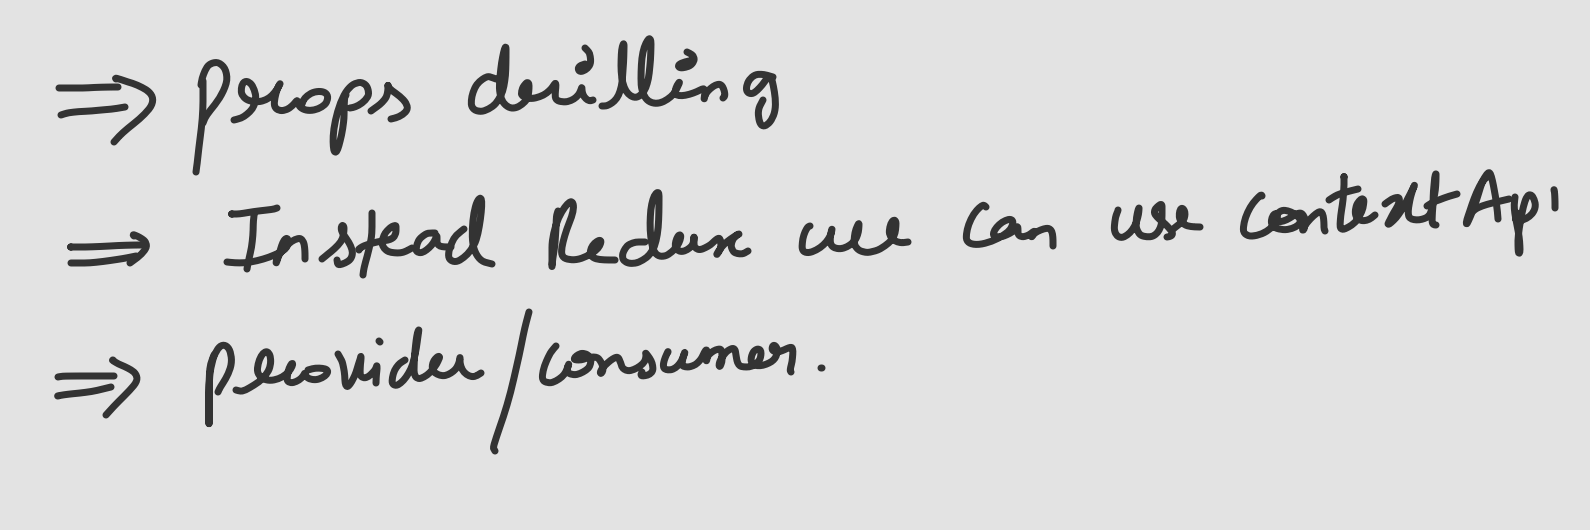 ⇒ props drilling
⇒ Instead Redux we can use contextApi
⇒ provider/consumer.